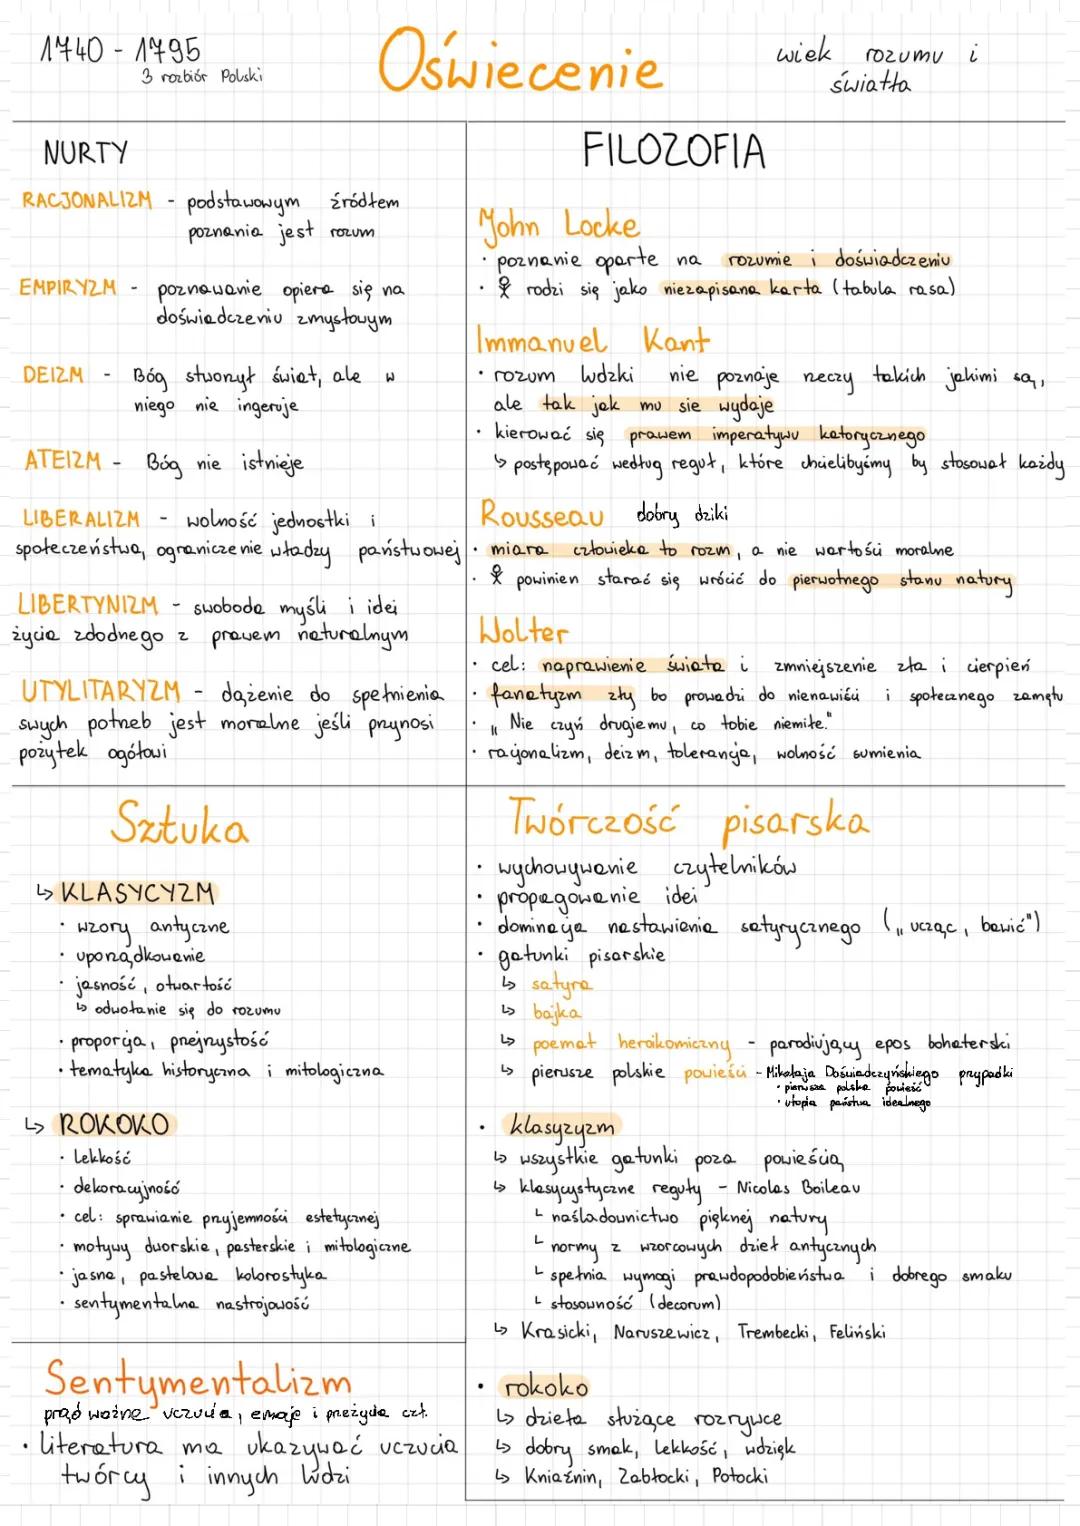 1740 - 1795
3 rozbiór Polski
Oświecenie
wiek rozumu i
światła
NURTY
RACJONALIZM - podstawowym źródłem
poznania jest rozum
EMPIRYZM - poznawanie opiera się na
doświadczeniu zmysłowym
DEIZM - Bóg stworzył świat, ale w
niego nie ingeruje
ATEIZM - Bóg nie istnieje
LIBERALIZM - wolność jednostki i
społeczeństwa, ograniczenie władzy państwowej
LIBERTYNIZM - swoboda myśli i idei
życia zdodnego z prawem naturalnym
UTYLITARYZM - dążenie do spełnienia
swych potrzeb jest moralne jeśli przynosi
pożytek ogółowi
FILOZOFIA
John Locke
· poznanie oparte na rozumie i doświadczeniu
· rodzi się jako niezapisana karta (tabula rasa)
Immanuel Kant
· rozum ludzki nie poznaje rzeczy takich jakimi są,
ale tak jak mu sie wydaje
· kierować się prawem imperatywu katorycznego
↳ postępować według reguł, które chcielibyśmy by stosował każdy
Rousseau dobry dziki
· miara człowieka to rozm, a nie wartości moralne
· powinien starać się wrócić do pierwotnego stanu natury
Wolter
· cel: naprawienie świata i zmniejszenie zła i cierpień
· fanatyzm zły bo prowadzi do nienawiści i społecznego zamętu
· „Nie czyń drugiemu, co tobie niemiłe."
· racjonalizm, deizm, tolerancja, wolność sumienia
Sztuka
↳ KLASYCYZM
· wzory antyczne
· uporządkowanie
· jasność, otwartość
↳ odwołanie się do rozumu
· proporcja, przejrzystość
· tematyka historyczna i mitologiczna
↳ ROKOKO
· lekkość
· dekoracyjność
· cel: sprawianie przyjemności estetycznej
· motywy dworskie, pasterskie i mitologiczne
· jasna, pastelowa kolorostyka
· sentymentalna nastrojowość
Sentymentalizm
prąd ważne uczucia, emocje i przeżycia czł.
· literatura ma ukazywać uczucia
twórcy i innych ludzi
Twórczość pisarska
· wychowywanie czytelników
· propagowanie idei
· dominacja nastawienia satyrycznego („ucząc, bawić")
· gatunki pisarskie
↳ satyra
↳ bajka
↳ poemat heroikomiczny - parodiujący epos bohaterski
↳ pierwsze polskie powieści - Mikołaja Doświadczyńskiego przypadki
· pierwsza polska powieść
· utopia państwa idealnego
· klasyzyzm
↳ wszystkie gatunki poza powieścią
↳ klasycystyczne reguły - Nicolas Boileau
└ naśladownictwo pięknej natury
└ normy z wzorcowych dzieł antycznych
└ spełnia wymogi prawdopodobieństwa i dobrego smaku
└ stosowność (decorum)
↳ Krasicki, Naruszewicz, Trembecki, Feliński
· rokoko
↳ dzieła służące rozrywce
↳ dobry smak, lekkość, wdzięk
↳ Kniaźnin, Zabłocki, Potocki